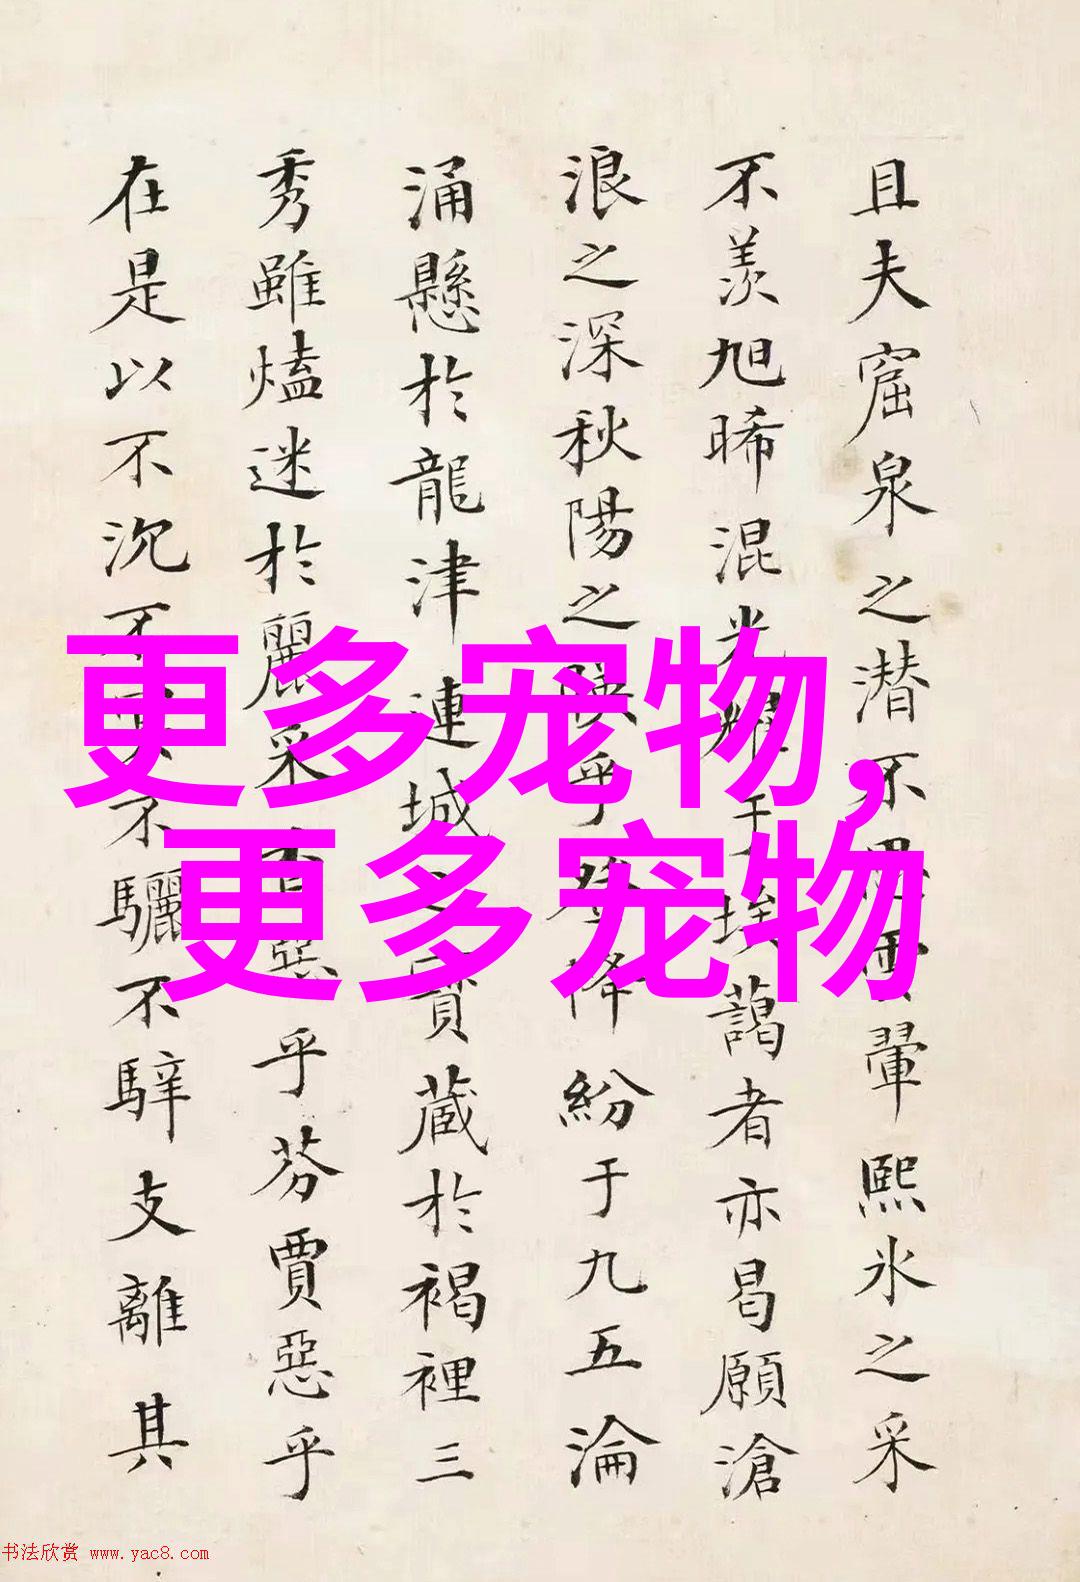 且夫窟泉之潜不翬熙氷之采
不羨旭晞混光耀于埃藹者亦曷願滄
浪之深秋陽之映乎登降紛于九五淪
涌懸於龍津連城之寶藏於褐裡三
秀雖熆迷於麗采惡乎芬賈惡乎
在是以不沉不不驪不騂支離其
更多宠物,
更多宠物
书法欣赏 www.yac8.com